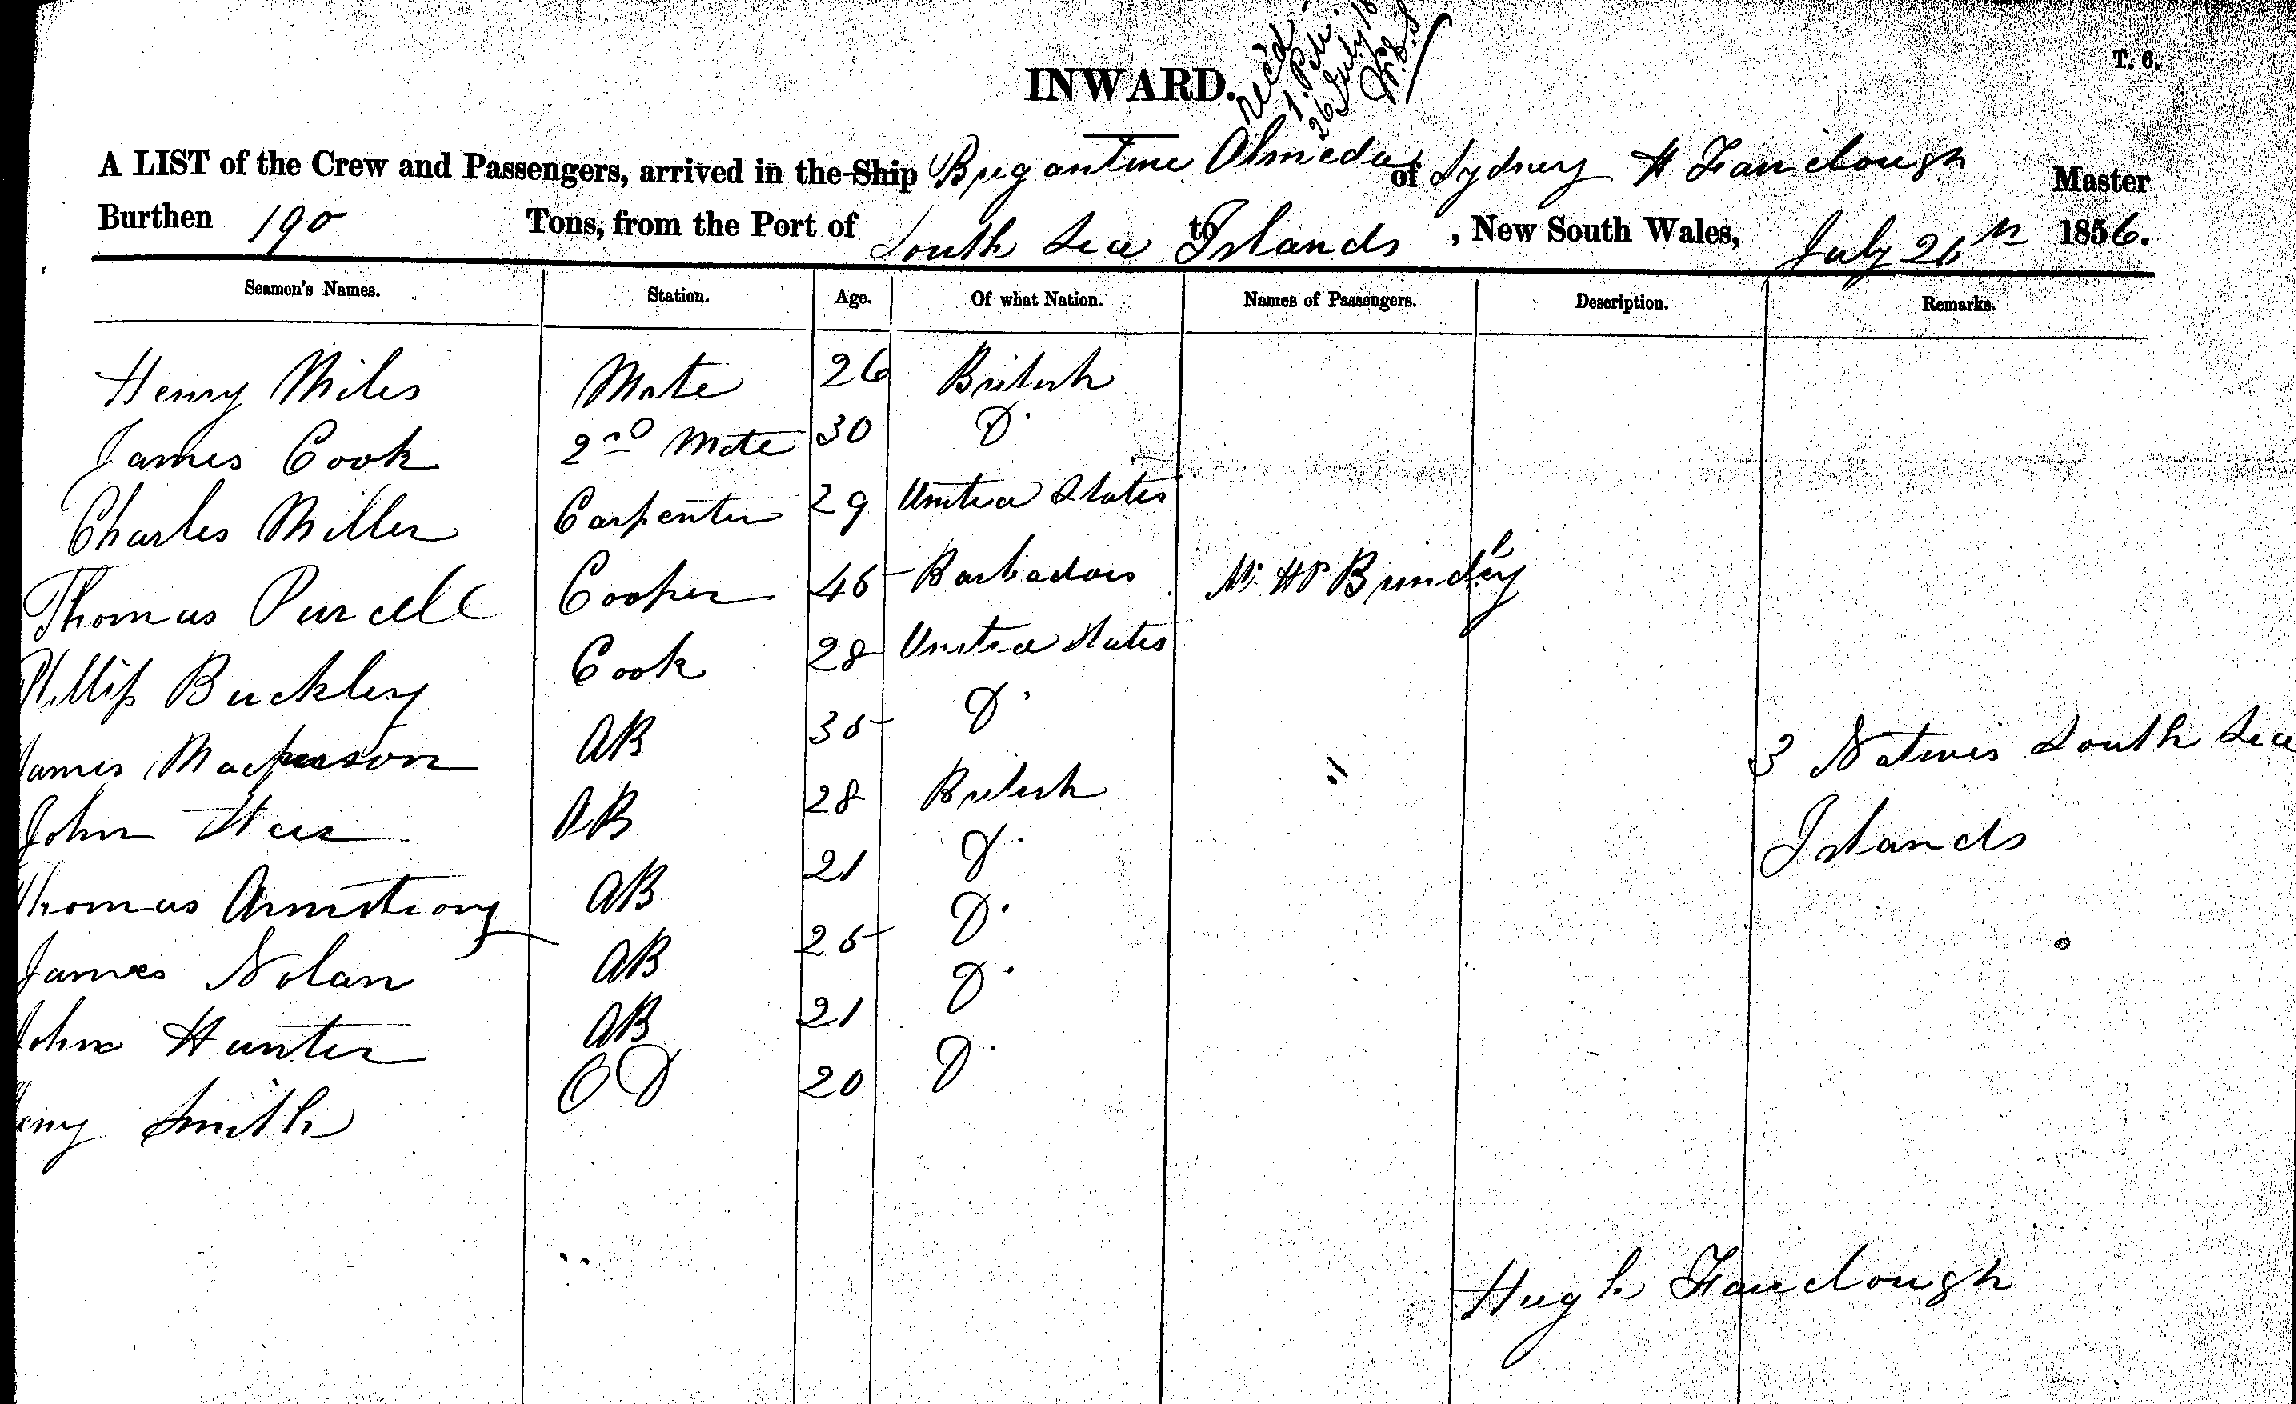 T. 6.
INWARD.
Rec'd
26 July
A LIST of the Crew and Passengers, arrived in the Ship Brigantine Olmeda of Sydney H Fairclough Master
Burthen 190 Tons, from the Port of South Sea Islands to , New South Wales, July 26th 1856.
Seamen's Names. Station. Age. Of what Nation. Names of Passengers. Description. Remarks.
Henry Miles Mate 26 British
James Cook 2nd Mate 30 Do
Charles Miller Carpenter 29 United States
Thomas Purcell Cooper 45 Barbadois Mr HP Brundly
Phillip Buckley Cook 28 United States
James Macpherson AB 35 Do
3 Natives South Sea
John AB 28 British
Islands
Thomas Armstrong AB 21 Do
James Nolan AB 25 Do
John Hunter AB 21 Do
Henry Smith OD 20 Do
Hugh Fairclough